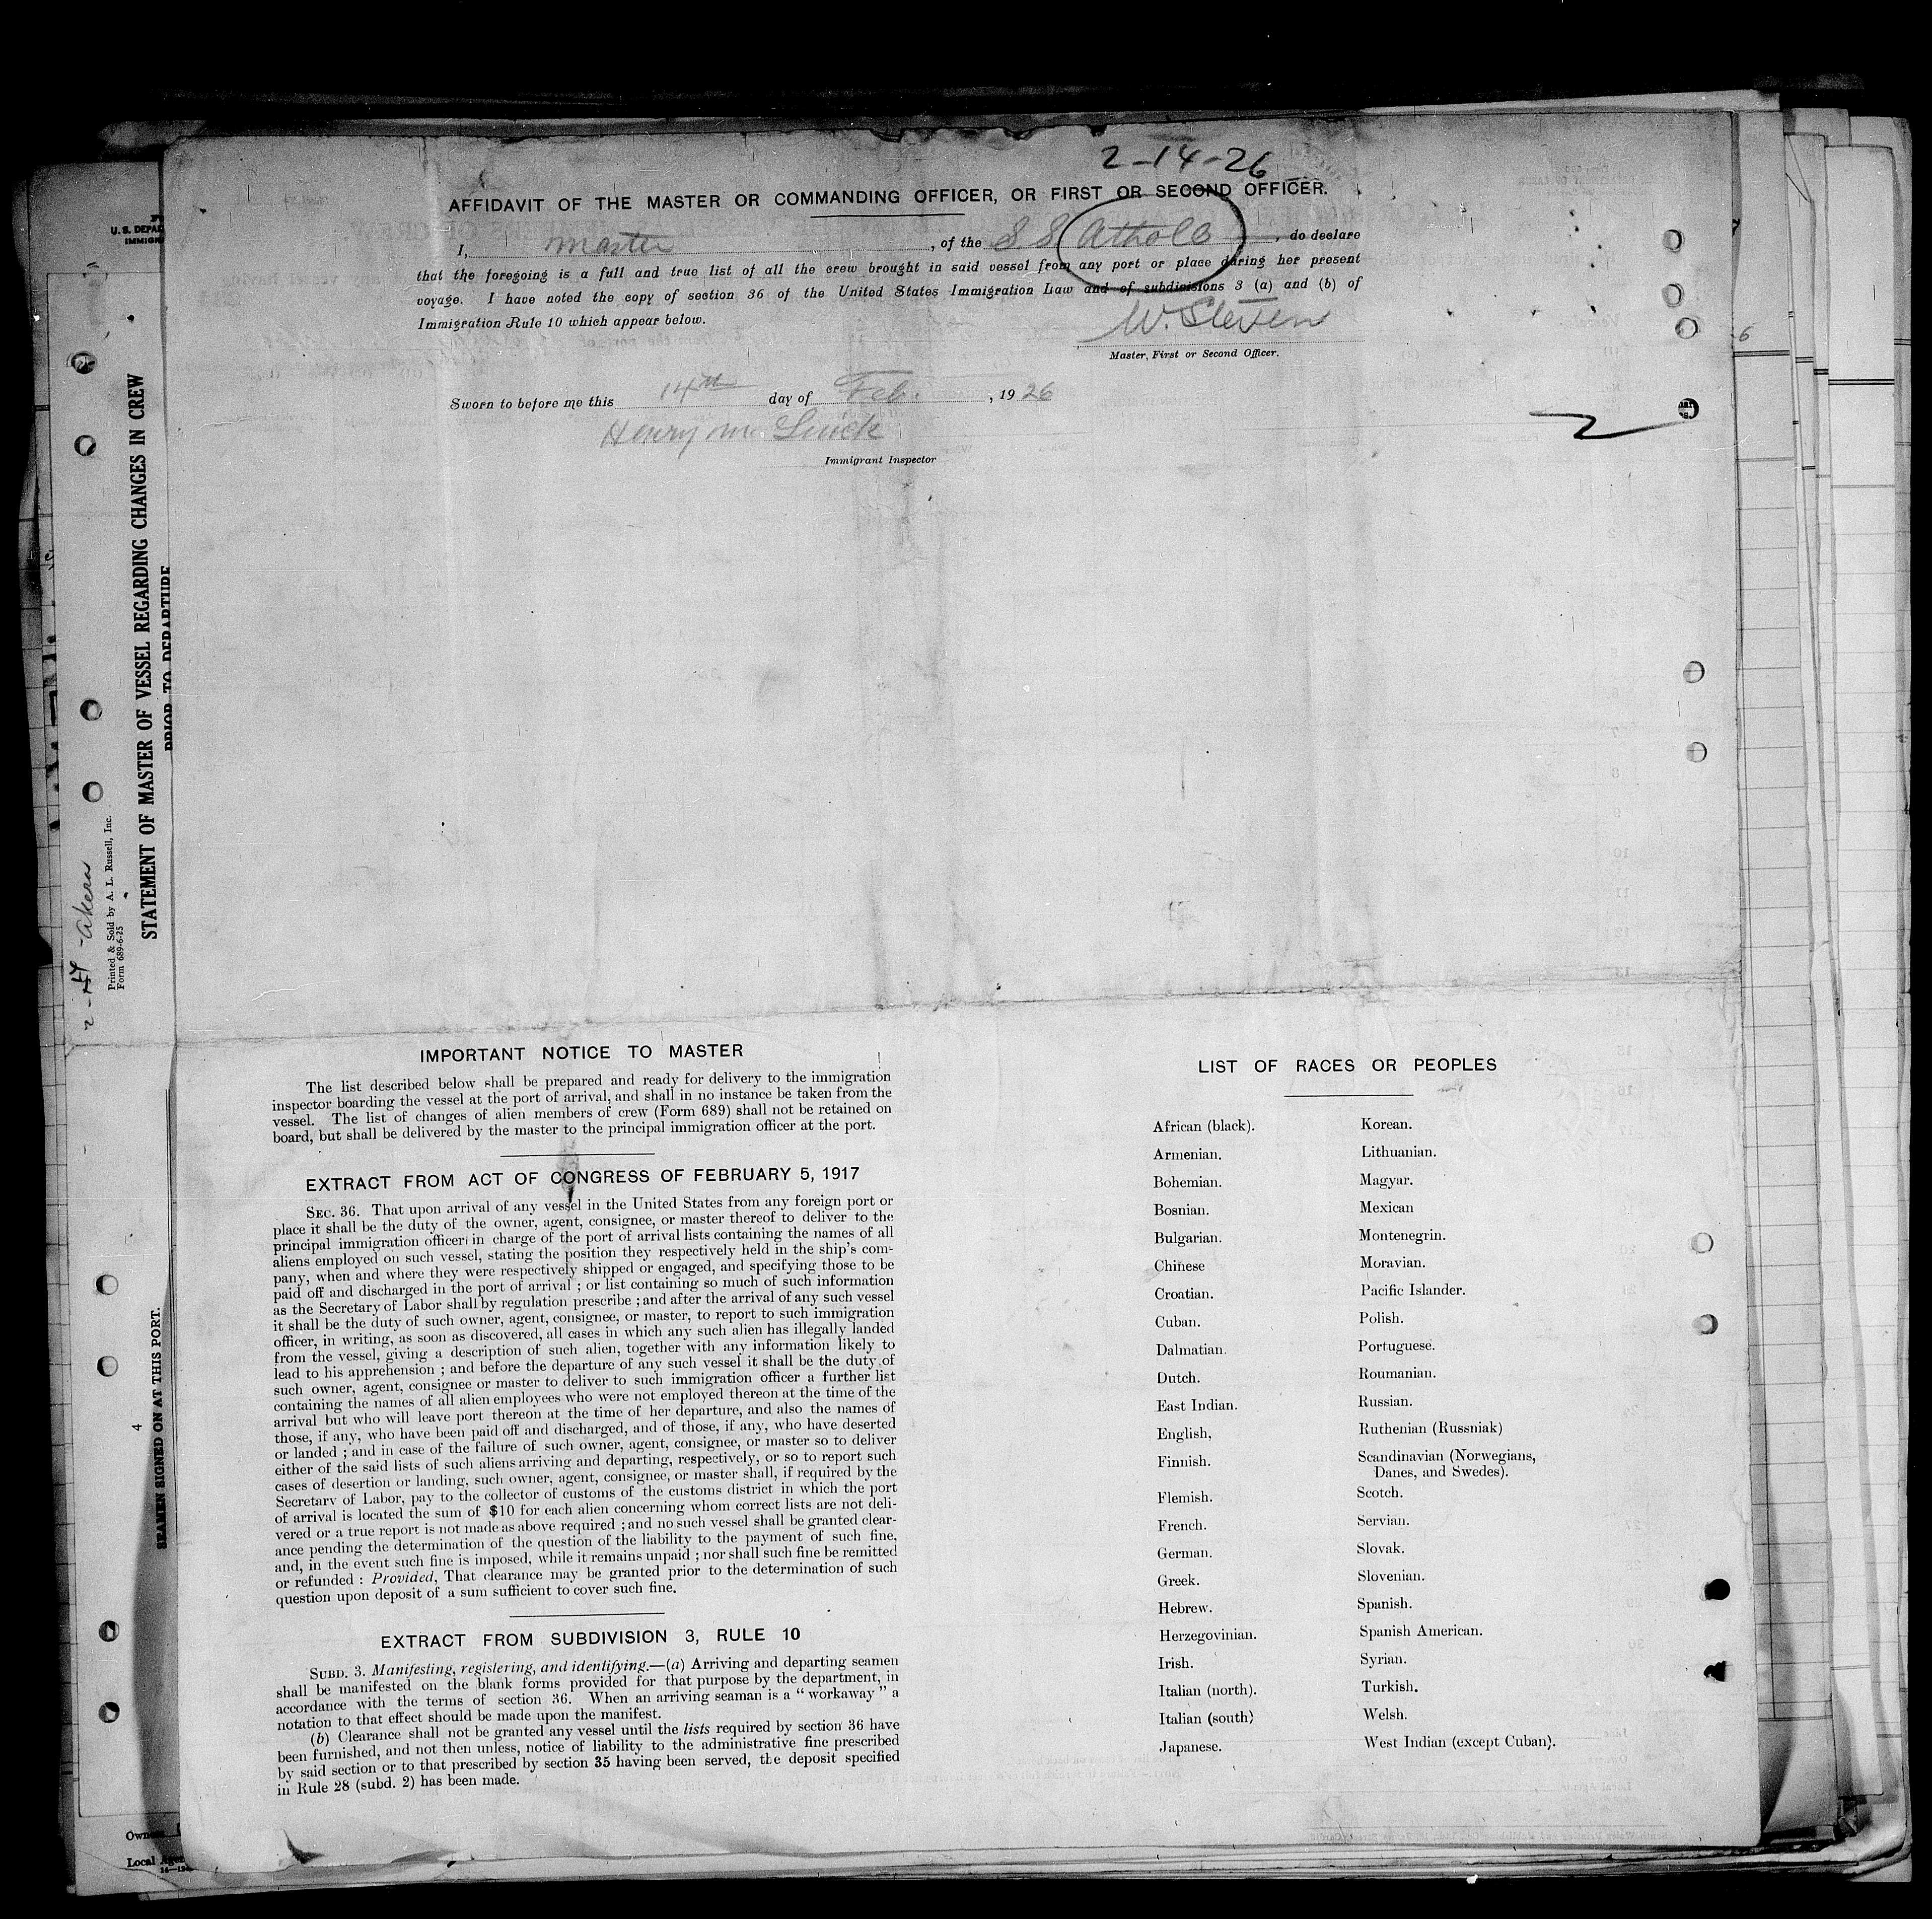 2-14-26
AFFIDAVIT OF THE MASTER OR COMMANDING OFFICER, OR FIRST OR SECOND OFFICER.
I, master, of the S.S. Atholl, do declare
that the foregoing is a full and true list of all the crew brought in said vessel from any port or place during her present
voyage. I have noted the copy of section 36 of the United States Immigration Law and of subdivisions 3 (a) and (b) of
Immigration Rule 10 which appear below.
W. Steven
Master, First or Second Officer.
Sworn to before me this 14th day of Feb., 1926
Henry
Immigrant Inspector
IMPORTANT NOTICE TO MASTER
The list described below shall be prepared and ready for delivery to the immigration
inspector boarding the vessel at the port of arrival, and shall in no instance be taken from the
vessel. The list of changes of alien members of crew (Form 689) shall not be retained on
board, but shall be delivered by the master to the principal immigration officer at the port.
EXTRACT FROM ACT OF CONGRESS OF FEBRUARY 5, 1917
SEC. 36. That upon arrival of any vessel in the United States from any foreign port or
place it shall be the duty of the owner, agent, consignee, or master thereof to deliver to the
principal immigration officer in charge of the port of arrival lists containing the names of all
aliens employed on such vessel, stating the position they respectively held in the ship's com-
pany, when and where they were respectively shipped or engaged, and specifying those to be
paid off and discharged in the port of arrival ; or list containing so much of such information
as the Secretary of Labor shall by regulation prescribe ; and after the arrival of any such vessel
it shall be the duty of such owner, agent, consignee, or master, to report to such immigration
officer, in writing, as soon as discovered, all cases in which any such alien has illegally landed
from the vessel, giving a description of such alien, together with any information likely to
lead to his apprehension ; and before the departure of any such vessel it shall be the duty of
such owner, agent, consignee or master to deliver to such immigration officer a further list
containing the names of all alien employees who were not employed thereon at the time of the
arrival but who will leave port thereon at the time of her departure, and also the names of
those, if any, who have been paid off and discharged, and of those, if any, who have deserted
or landed ; and in case of the failure of such owner, agent, consignee, or master so to deliver
either of the said lists of such aliens arriving and departing, respectively, or so to report such
cases of desertion or landing, such owner, agent, consignee, or master shall, if required by the
Secretary of Labor, pay to the collector of customs of the customs district in which the port
of arrival is located the sum of $10 for each alien concerning whom correct lists are not deli-
vered or a true report is not made as above required ; and no such vessel shall be granted clear-
ance pending the determination of the question of the liability to the payment of such fine,
and, in the event such fine is imposed, while it remains unpaid ; nor shall such fine be remitted
or refunded : Provided, That clearance may be granted prior to the determination of such
question upon deposit of a sum sufficient to cover such fine.
EXTRACT FROM SUBDIVISION 3, RULE 10
SUBD. 3. Manifesting, registering, and identifying.—(a) Arriving and departing seamen
shall be manifested on the blank forms provided for that purpose by the department, in
accordance with the terms of section 36. When an arriving seaman is a " workaway " a
notation to that effect should be made upon the manifest.
(b) Clearance shall not be granted any vessel until the lists required by section 36 have
been furnished, and not then unless, notice of liability to the administrative fine prescribed
by said section or to that prescribed by section 35 having been served, the deposit specified
in Rule 28 (subd. 2) has been made.
LIST OF RACES OR PEOPLES
African (black).
Armenian.
Bohemian.
Bosnian.
Bulgarian.
Chinese
Croatian.
Cuban.
Dalmatian.
Dutch.
East Indian.
English,
Finnish.
Flemish.
French.
German.
Greek.
Hebrew.
Herzegovinian.
Irish.
Italian (north).
Italian (south)
Japanese.
Korean.
Lithuanian.
Magyar.
Mexican
Montenegrin.
Moravian.
Pacific Islander.
Polish.
Portuguese.
Roumanian.
Russian.
Ruthenian (Russniak)
Scandinavian (Norwegians,
Danes, and Swedes).
Scotch.
Servian.
Slovak.
Slovenian.
Spanish.
Spanish American.
Syrian.
Turkish.
Welsh.
West Indian (except Cuban).
U. S. DEPA
IMMIGR
Printed & Sold by A. L. Russell, Inc.
Form 689-6-25
STATEMENT OF MASTER OF VESSEL REGARDING CHANGES IN CREW
PRIOR TO DEPARTURE
4
SEAMEN SIGNED ON AT THIS PORT.
Owne
Local Agen